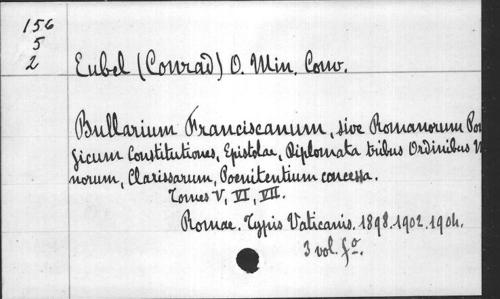 156
5
2
Eubel (Conrad) O. Min. Conv.
Bullarium Franciscanum, sive Romanorum Pon
ficum Constitutiones, Epistolae, Diplomata tribus Ordinibus M
norum, Clarissarum, Poenitentium concessa.
Tomes V, VI, VII.
Romae. Typis Vaticanis. 1898. 1902. 1904.
3 vol. fo.